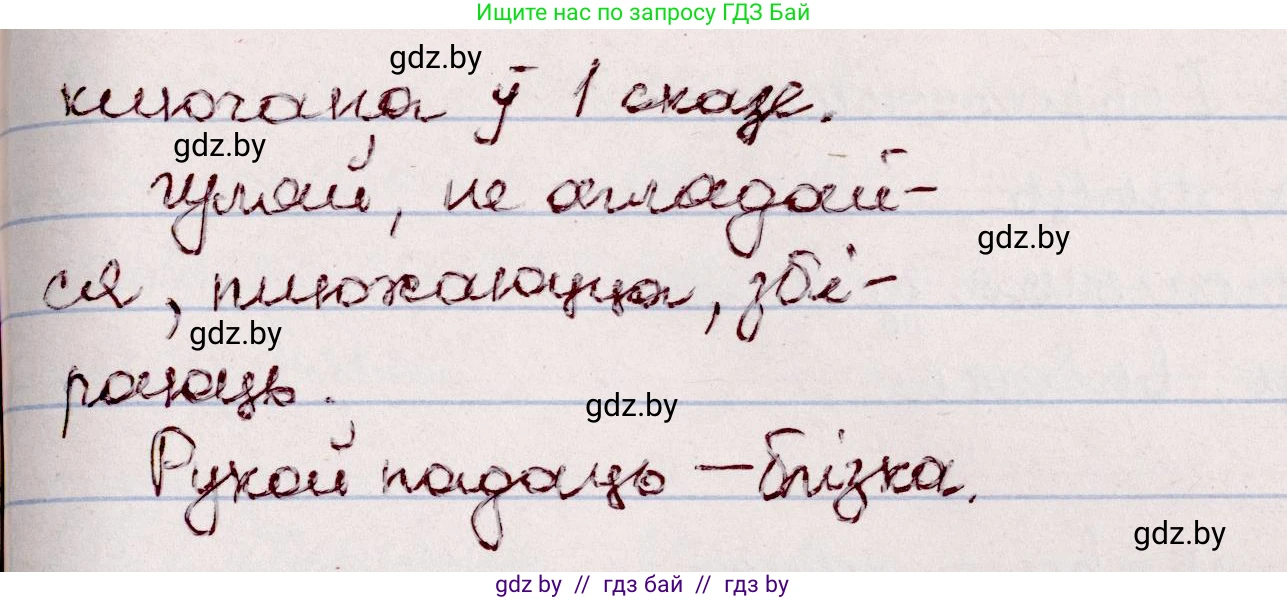 Ищите нас по запросу ГДЗ Бай
gdz.by
ключана ў 1 сказе.
gdz.by
Чуллай, не аглядай-
gdz.by
ся, пляжаюцца, збі-
gdz.by
раюць.
gdz.by
Рукой падаць – блізка.
gdz.by
gdz.by // гдз бай // гдз by